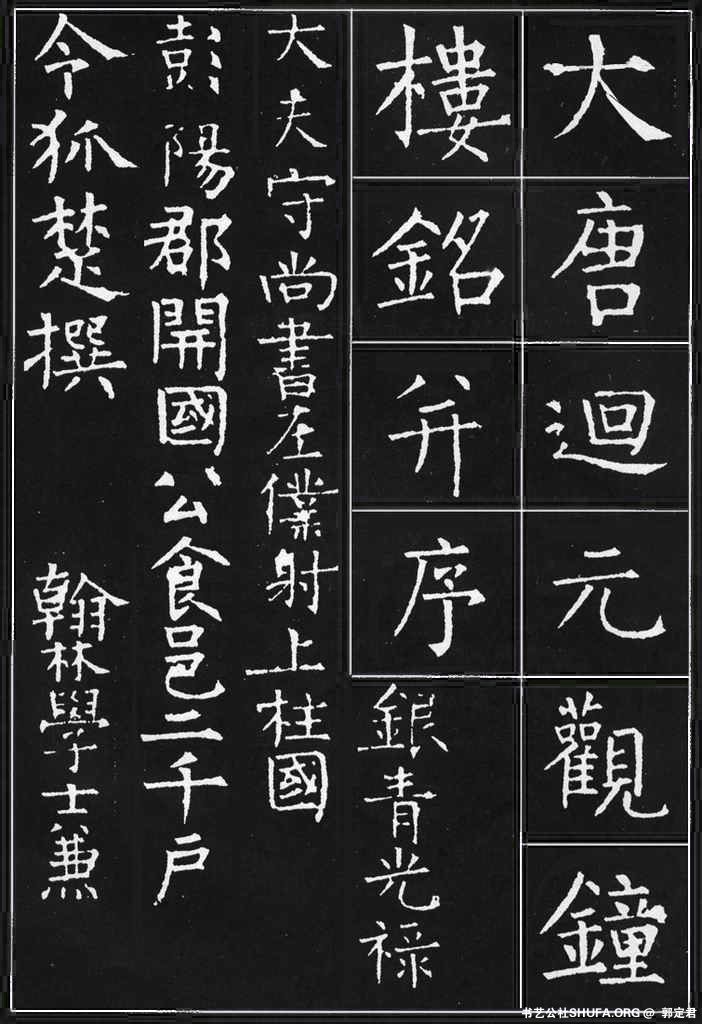 大唐迴元觀鐘
樓銘并序 銀青光祿
大夫守尚書左僕射上柱國
彭陽郡開國公食邑二千戶
令狐楚撰 翰林學士兼
书艺公社SHUFA.ORG @ 郭定君